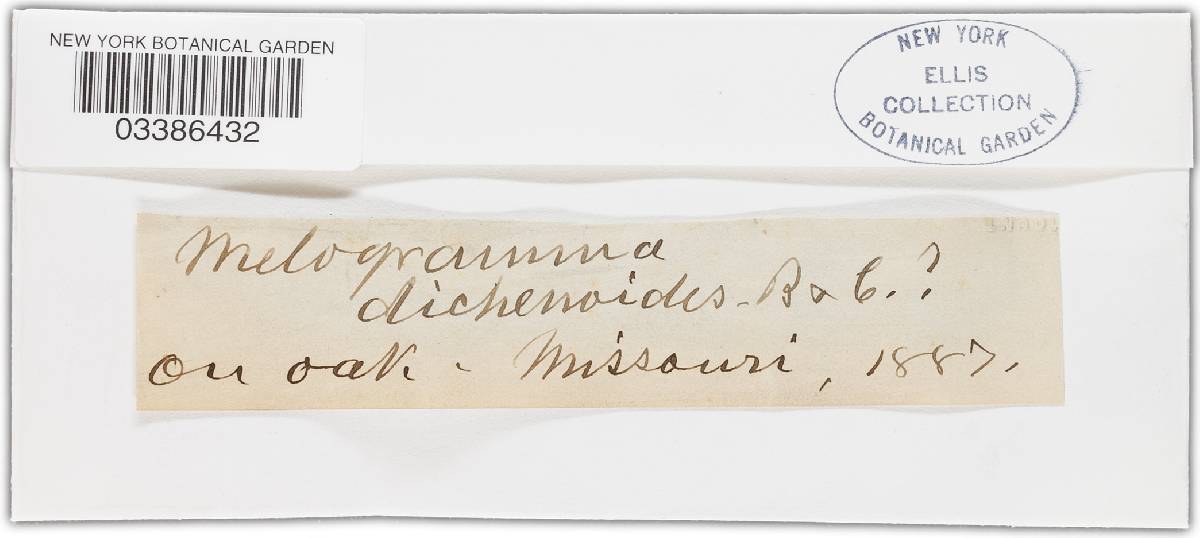 NEW YORK BOTANICAL GARDEN
03386432
NEW YORK
ELLIS
COLLECTION
BOTANICAL GARDEN
Melogramma
dichenoides - B & C. ?
on oak - Missouri, 1887.